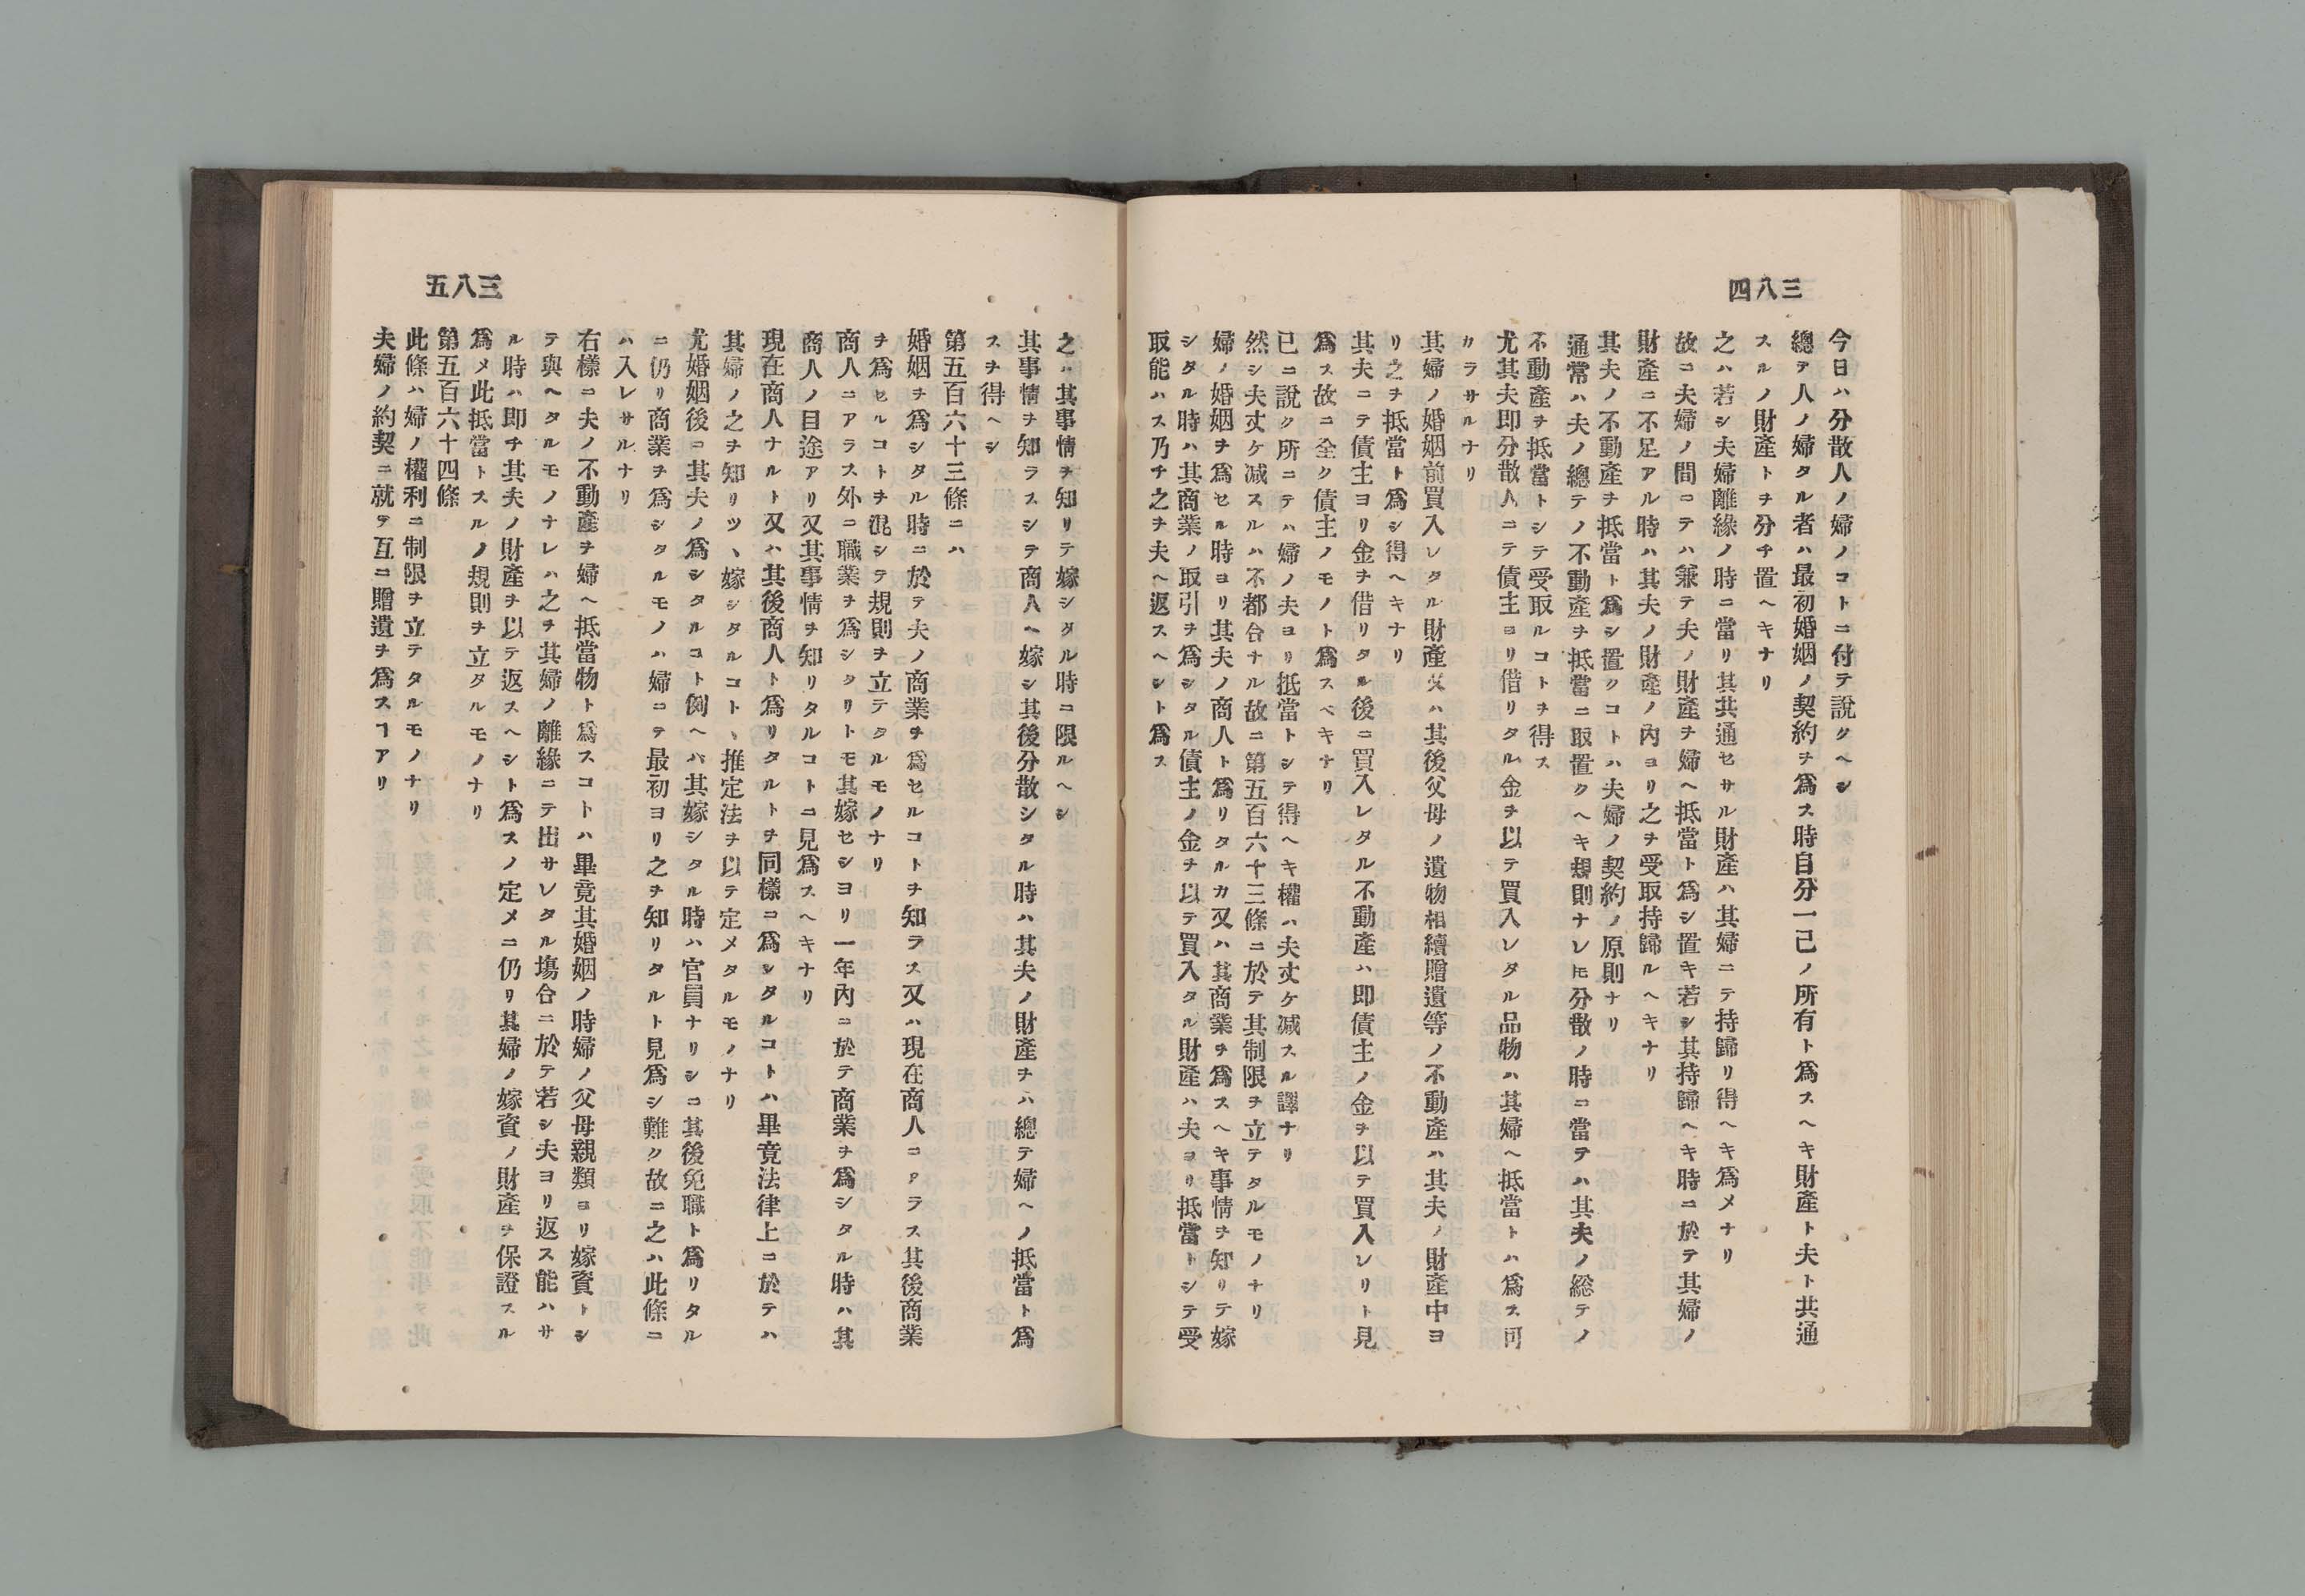 三八四
今日ハ分散人ノ婦ノコトニ付テ說クヘシ
總テ人ノ婦タル者ハ最初婚姻ノ契約ヲ爲ス時自分一己ノ所有ト爲スヘキ財產ト夫ト共通
スルノ財產トヲ分チ置ヘキナリ
之ハ若シ夫婦離緣ノ時ニ當リ其共通セサル財產ハ其婦ニテ持歸リ得ヘキ爲メナリ
故ニ夫婦ノ間ニテハ兼テ夫ノ財產ヲ婦ヘ抵當ト爲シ置キ若シ其持歸ヘキ時ニ於テ其婦ノ
財產ニ不足アル時ハ其夫ノ財產ノ內ヨリ之ヲ受取持歸ルヘキナリ
其夫ノ不動產ヲ抵當ト爲シ置クコトハ夫婦ノ契約ノ原則ナリ
通常ハ夫ノ總テノ不動產ヲ抵當ニ取置クヘキ規則ナレ𪜈分散ノ時ニ當テハ其夫ノ総テノ
不動產ヲ抵當トシテ受取ルコトヲ得ス
尤其夫卽分散人ニテ債主ヨリ借リタル金ヲ以テ買入レタル品物ハ其婦ヘ抵當トハ爲ス可
カラサルナリ
其婦ノ婚姻前買入レタル財產又ハ其後父母ノ遺物相續贈遺等ノ不動產ハ其夫ノ財產中ヨ
リ之ヲ抵當ト爲シ得ヘキナリ
其夫ニテ債主ヨリ金ヲ借リタル後ニ買入レタル不動產ハ卽債主ノ金ヲ以テ買入レリト見
爲ス故ニ全ク債主ノモノト爲スベキナリ
已ニ說ク所ニテハ婦ノ夫ヨリ抵當トシテ得ヘキ權ハ夫丈ケ减スル譯ナリ
然シ夫丈ケ减スルハ不都合ナル故ニ第五百六十三條ニ於テ其制限ヲ立テタルモノナリ
婦ノ婚姻ヲ爲セル時ヨリ其夫ノ商人ト爲リタルカ又ハ其商業ヲ爲スヘキ事情ヲ知リテ嫁
シタル時ハ其商業ノ取引ヲ爲シタル債主ノ金ヲ以テ買入タル財產ハ夫ヨリ抵當トシテ受
取能ハス乃チ之ヲ夫ヘ返スヘシト爲ス
三八五
之ハ其事情ヲ知リテ嫁シタル時ニ限ルヘシ
其事情ヲ知ラスシテ商人ヘ嫁シ其後分散シタル時ハ其夫ノ財產ヲハ總テ婦ヘノ抵當ト爲
スヲ得ヘシ
第五百六十三條ニハ
婚姻ヲ爲シタル時ニ於テ夫ノ商業ヲ爲セルコトヲ知ラス又ハ現在商人ニアラス其後商業
ヲ爲セルコトヲ混シテ規則ヲ立テタルモノナリ
商人ニアラス外ニ職業ヲ爲シタリトモ其嫁セシヨリ一年內ニ於テ商業ヲ爲シタル時ハ其
商人ノ目途アリ又其事情ヲ知リタルコトニ見爲スヘキナリ
現在商人ナルト又ハ其後商人ト爲リタルトヲ同樣ニ爲シタルコトハ畢竟法律上ニ於テハ
其婦ノ之ヲ知リツヽ嫁シタルコトヽ推定法ヲ以テ定メタルモノナリ
尤婚姻後ニ其夫ノ爲シタルコト例ヘハ其嫁シタル時ハ官員ナリシニ其後免職ト爲リタル
ニ仍リ商業ヲ爲シタルモノハ婦ニテ最初ヨリ之ヲ知リタルト見爲シ難ク故ニ之ハ此條ニ
ハ入レサルナリ
右樣ニ夫ノ不動產ヲ婦ヘ抵當物ト爲スコトハ畢竟其婚姻ノ時婦ノ父母親類ヨリ嫁資トシ
テ與ヘタルモノナレハ之ヲ其婦ノ離緣ニテ出サレタル塲合ニ於テ若シ夫ヨリ返ス能ハサ
ル時ハ卽チ其夫ノ財產ヲ以テ返スヘシト爲スノ定メニ仍リ其婦ノ嫁資ノ財產ヲ保證スル
爲メ此抵當トスルノ規則ヲ立タルモノナリ
第五百六十四條
此條ハ婦ノ權利ニ制限ヲ立テタルモノナリ
夫婦ノ約契ニ就テ互ニ贈遺ヲ爲スヿアリ